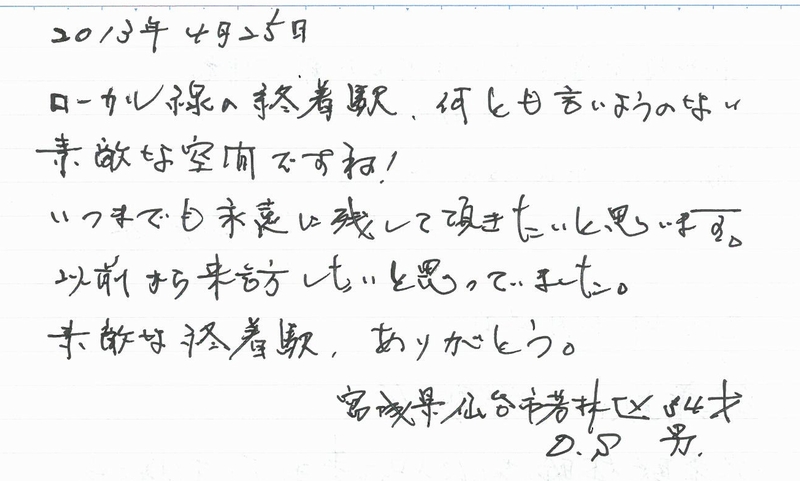 2013年4月25日
ローカル線の終着駅、何とも言いようのない
素敵な空間ですね!
いつまでも永遠に残して頂きたいと思います。
以前から来訪したいと思っていました。
素敵な終着駅、ありがとう。
宮城県仙台市若林区 54才
O.S 男.